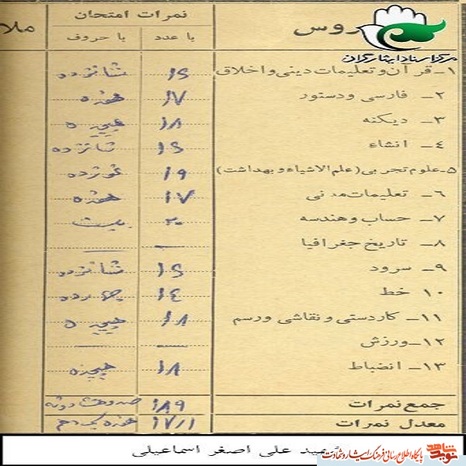 روس نمرات امتحان ملا
با عدد با حروف
مرکز اسناد ایثارگران
۱- قرآن و تعلیمات دینی و اخلاق ۱۶ شانزده
۲- فارسی و دستور ۱۷ هفده
۳- دیکته ۱۸ هیجده
۴- انشاء ۱۶ شانزده
۵- علوم تجربی (علم الاشیاء و بهداشت) ۱۹ نوزده
۶- تعلیمات مدنی ۱۷ هفده
۷- حساب و هندسه ۲۰ بیست
۸- تاریخ جغرافیا
۹- سرود ۱۶ شانزده
۱۰ خط ۱۴ چهارده
۱۱- کاردستی و نقاشی و رسم ۱۸ هیجده
۱۲- ورزش
۱۳- انضباط ۱۸ هیجده
جمع نمرات ۱۸۹ صدوهشتادونه
معدل نمرات ۱۷/۱ هفده یکدهم
شهید علی اصغر اسماعیلی
نوید شاهد پایگاه اطلاع رسانی فرهنگ ایثار و شهادت